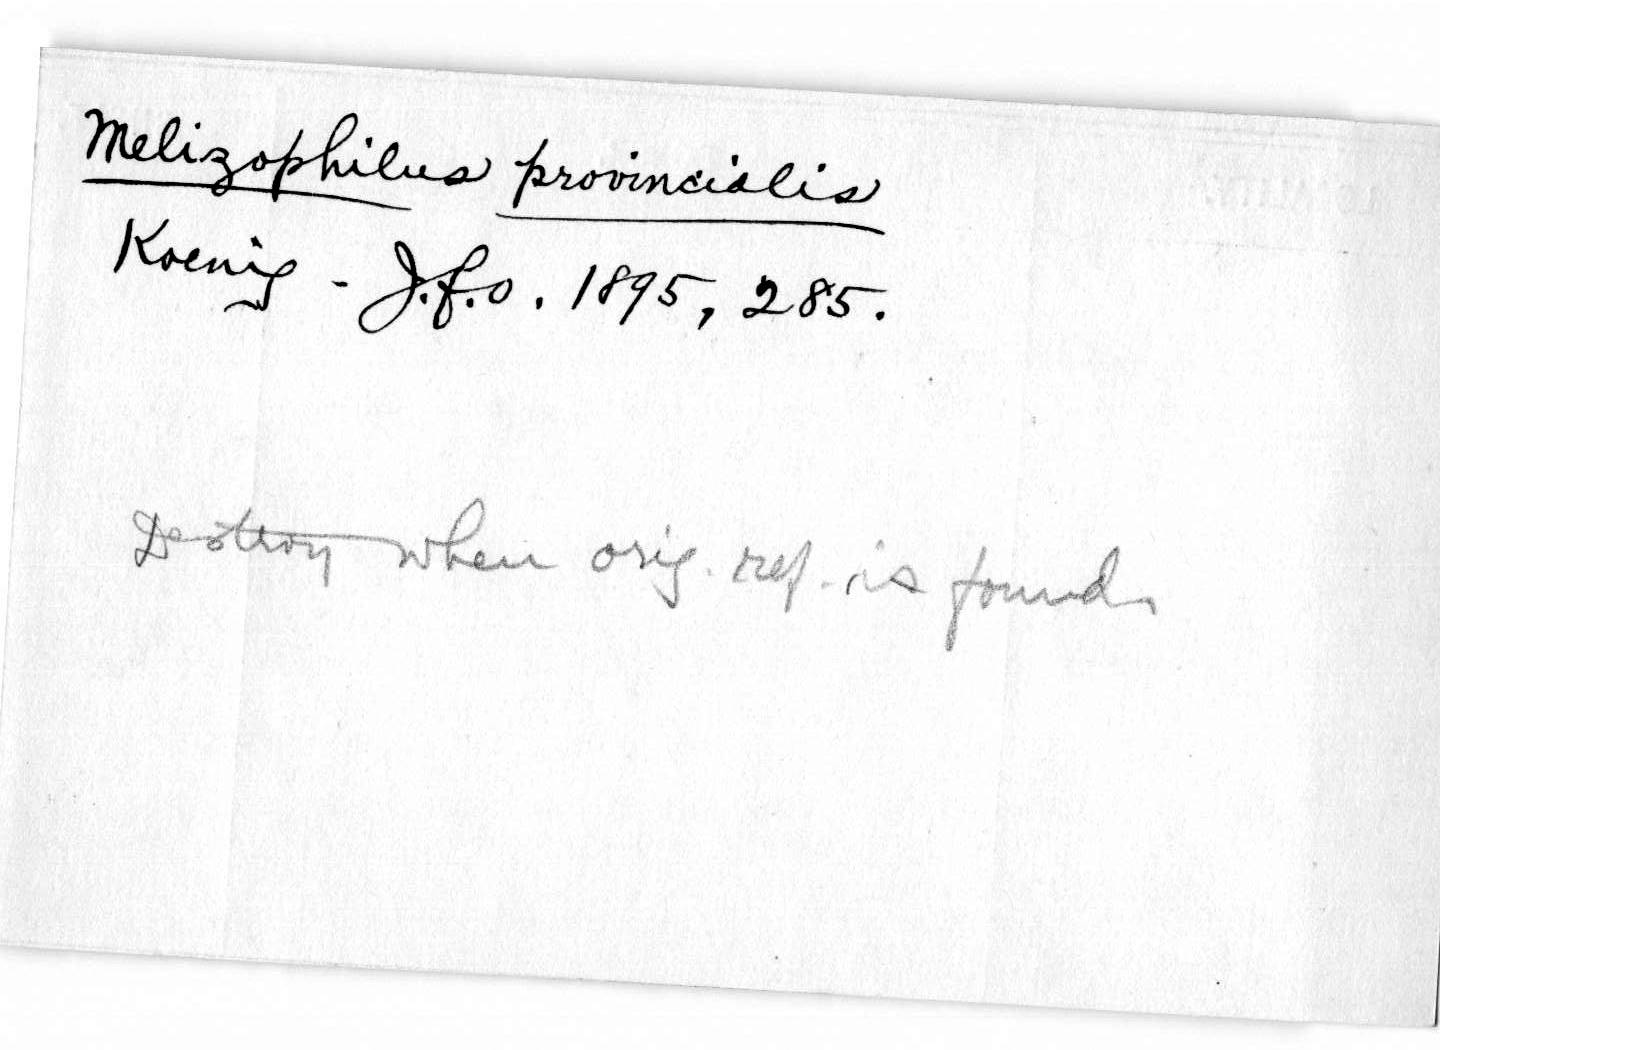 Melizophilus provincialis
Koenig - J.f.o. 1895, 285.
Destroy when orig. ref. is found